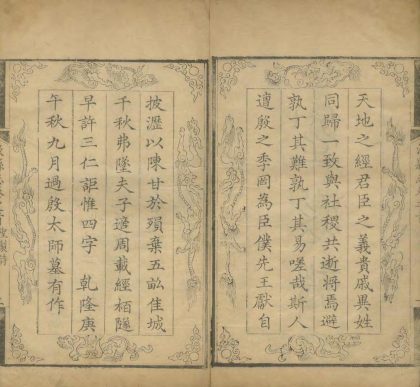 天地之經君臣之義貴戚異姓
同歸一致與社稷共逝將焉避
孰丁其難孰丁其易嗟哉斯人
遭殷之季罔為臣僕先王獻自
披瀝以陳甘於殞棄五畝佳城
千秋弗墜夫子適周載經栢隧
早許三仁詎惟四字 乾隆庚
午秋九月過殷太師墓有作